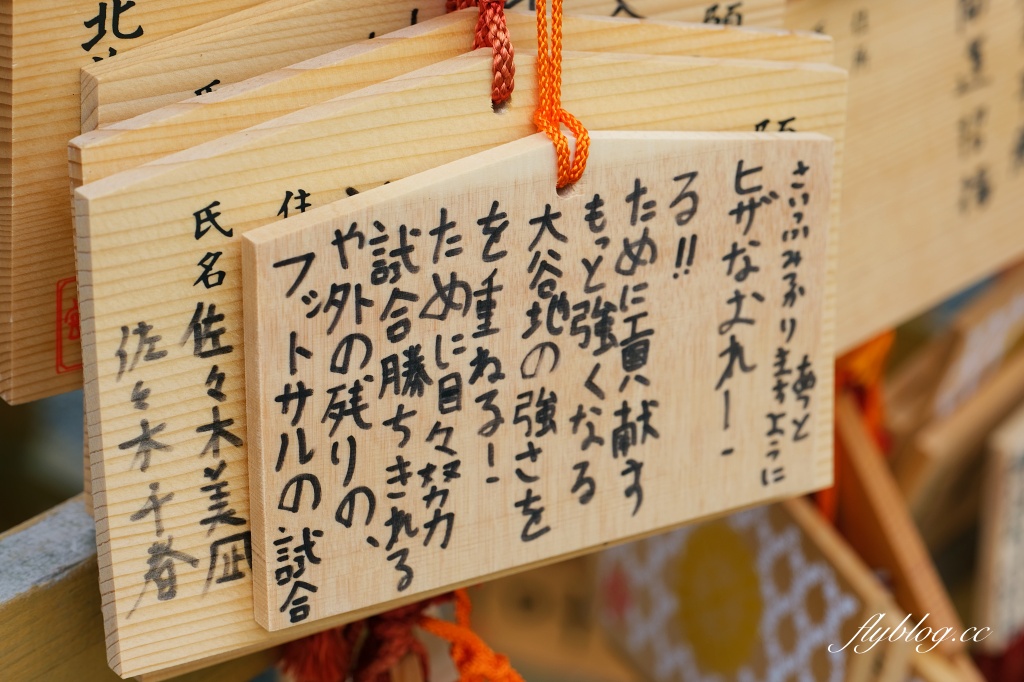 フットサルの試合
や外の残りの、
試合勝ちきれる
ために日々努力
を重ねる!
大谷地の強さを
もっと強くなる
ために貢献す
る!!
ヒザなおれー!
ますように
住
氏名 佐々木美凪
佐々木千春
北
願
flyblog.cc